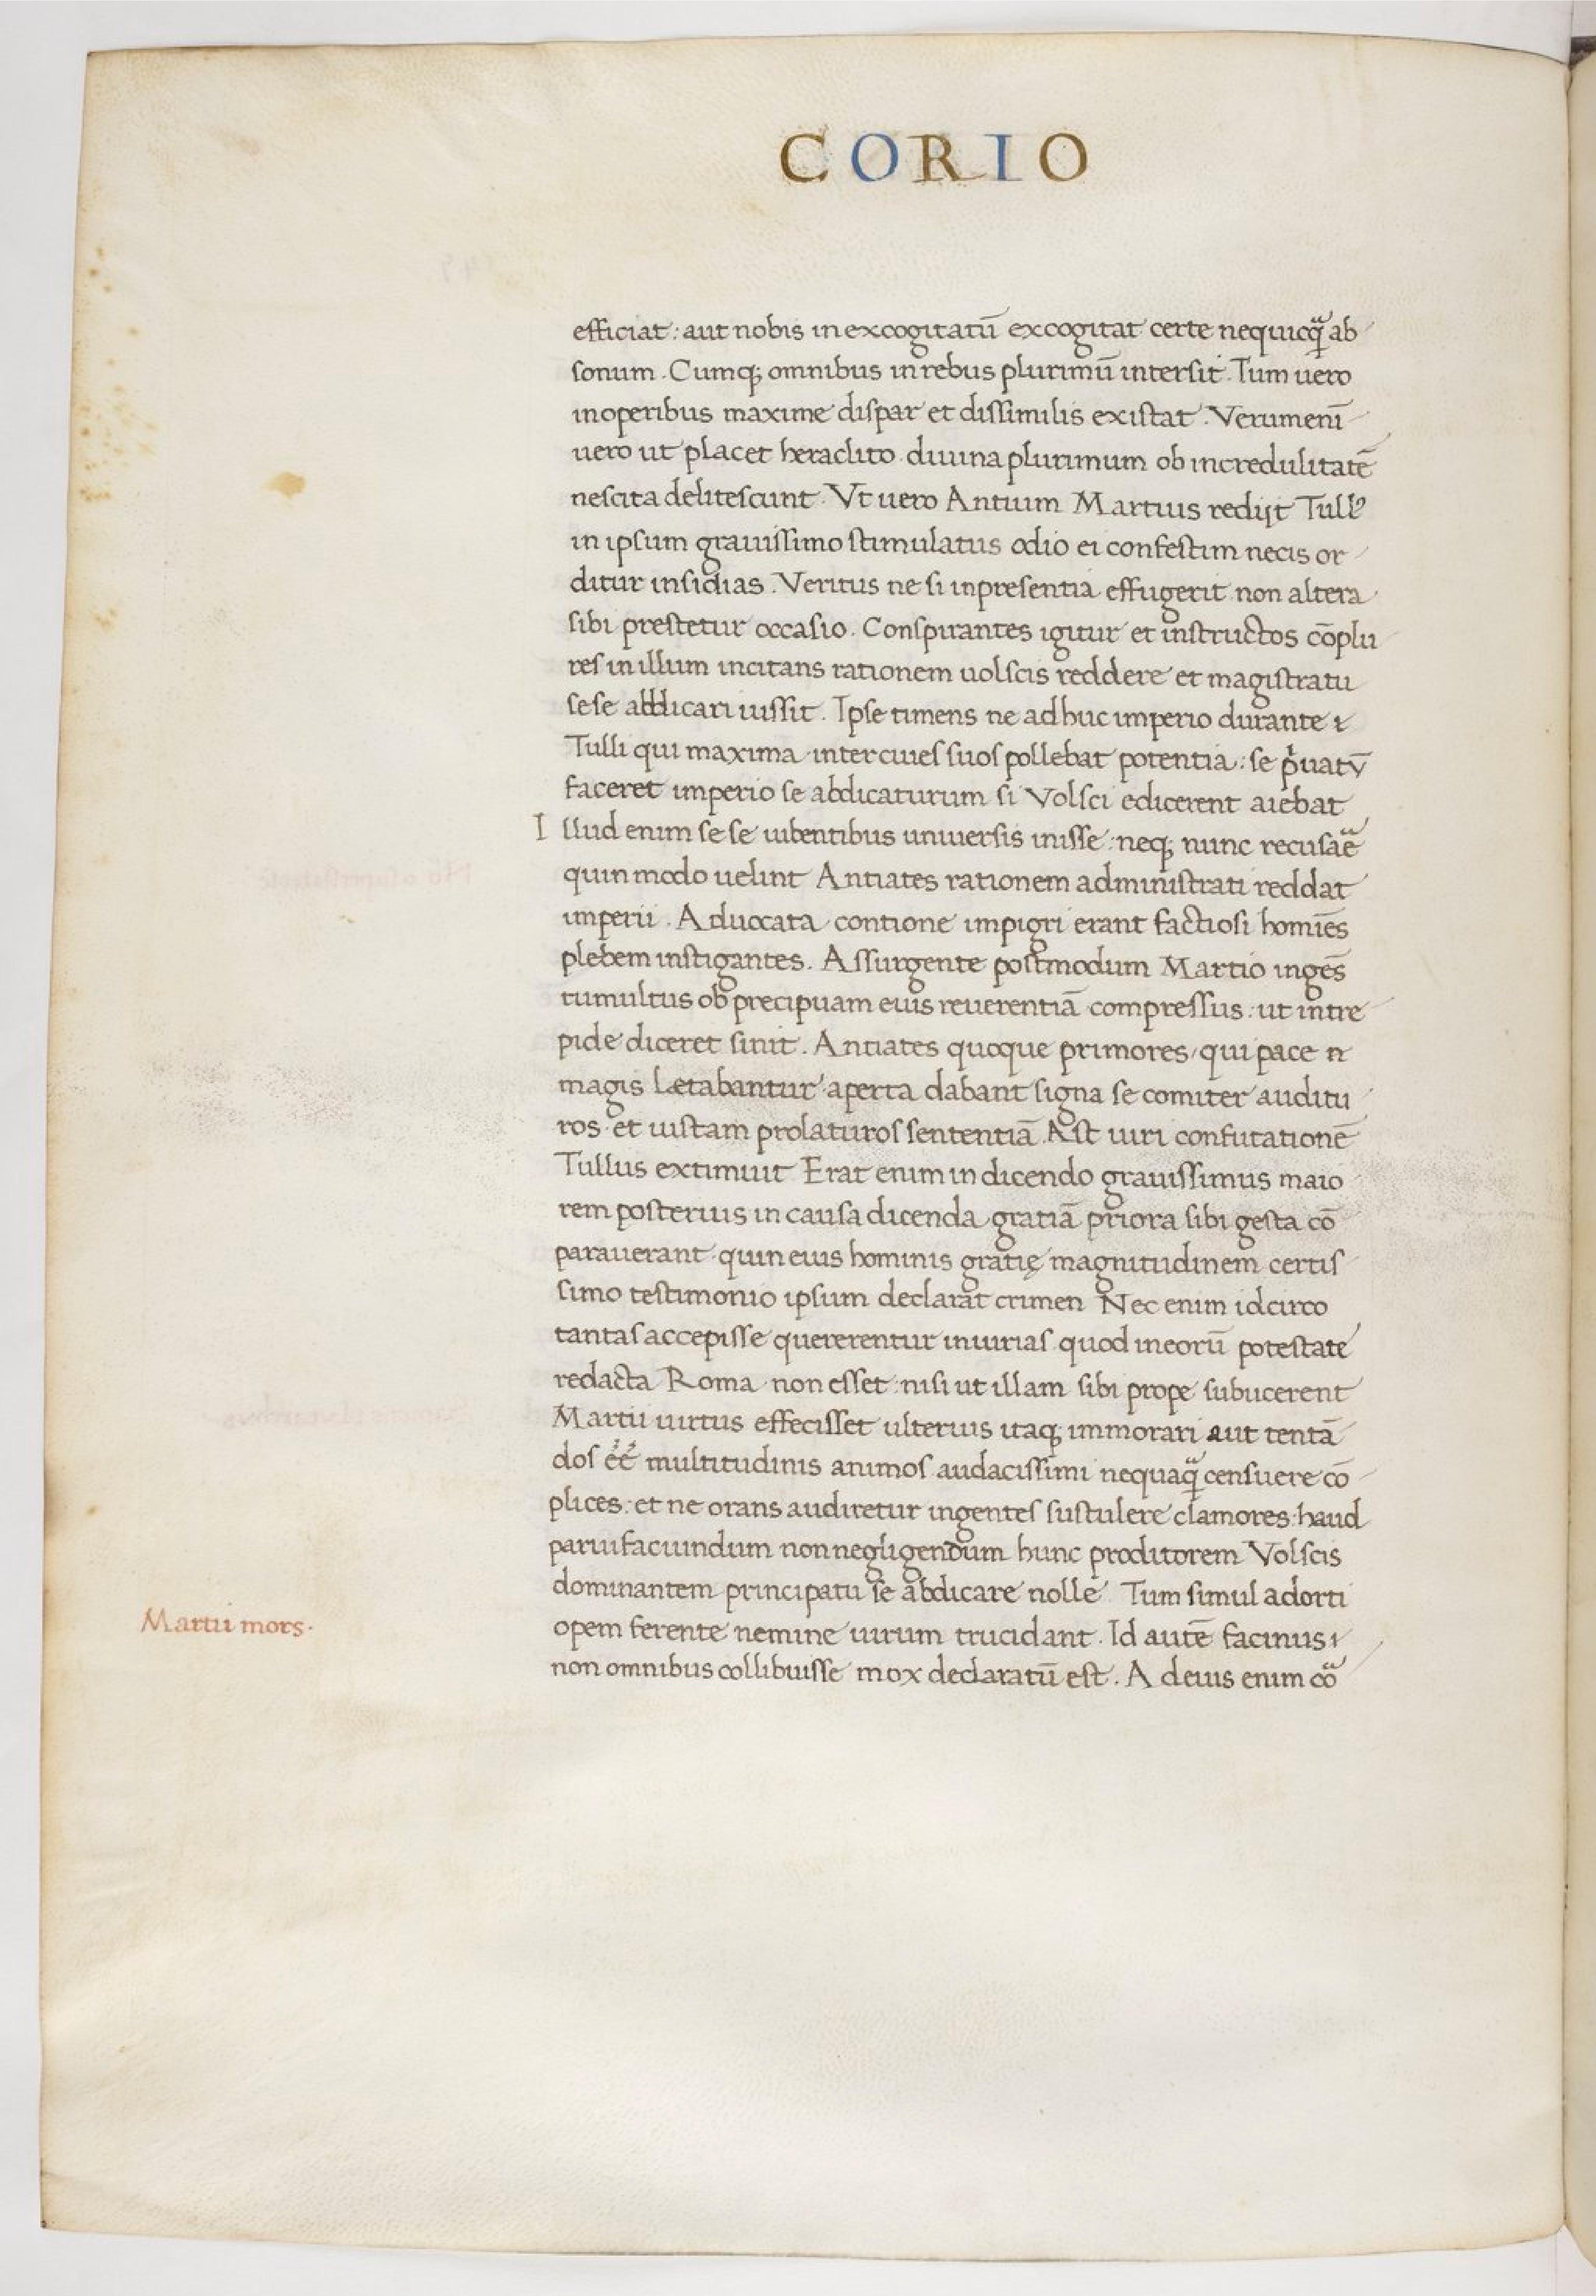 CORIO
efficiat: aut nobis inexcogitatū excogitat certe nequicꝗᷓ ab
sonum. Cumqꝫ omnibus in rebus plurimū intersit. Tum uero
in operibus maxime dispar et dissimilis existat. Verumenī
uero ut placet heraclito. diuina plurimum ob incredulitatē
nescita delitescunt. Vt uero Antium Martius redijt Tullꝰ
in ipsum grauissimo stimulatus odio ei confestim necis or
ditur insidias. Veritus ne si inpresentia effugerit non altera
sibi prestetur occasio. Conspirantes igitur et instructos cōplu
res in illum incitans rationem uolscis reddere et magistratu
sese abdicari iussit. Ipse timens ne adhuc imperio durante
Tulli qui maxima inter ciues suos pollebat potentia: se pͥuatū
faceret imperio se abdicaturum si Volsci edicerent aiebat
Illud enim se se iubentibus uniuersis inisse: neqꝫ nunc recusaᷓe
quin modo uelint Antiates rationem administrati reddat
imperii. Aduocata contione impigri erant factiosi homīes
plebem instigantes. Assurgente postmodum Martio ingēs
tumultus ob precipuam eius reuerentiā compressus: ut intre
pide diceret sinit. Antiates quoque primores, qui pace n̄
magis lætabantur aperta dabant signa se comiter auditu
ros et iustam prolaturos sententiā. Ast uiri confutationē
Tullus extimuit Erat enim in dicendo grauissimus maio
rem posterius in causa dicenda gratiā priora sibi gesta cō
parauerant quin eius hominis gratię magnitudinem certis
simo testimonio ipsum declarat crimen Nec enim idcirco
tantas accepisse quererentur iniurias quod in eorū potestate
redacta Roma non esset: nisi ut illam sibi prope subiicerent
Martii uirtus effecisset ulterius itaqꝫ immorari aut tentā
dos eē multitudinis animos audacissimi nequaꝗᷓ censuere cō
plices: et ne orans audiretur ingentes sustulere clamores: haud
paruifaciundum non negligendum hunc proditorem Volscis
dominantem principatu se abdicare nolle. Tum simul adorti
Martii mors.
opem ferente nemine uirum trucidant. Id autē facinus
non omnibus collibuisse mox declaratū est. A deius enim coᷓ